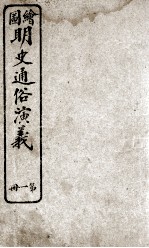 繪圖
明史通俗演義
第一冊